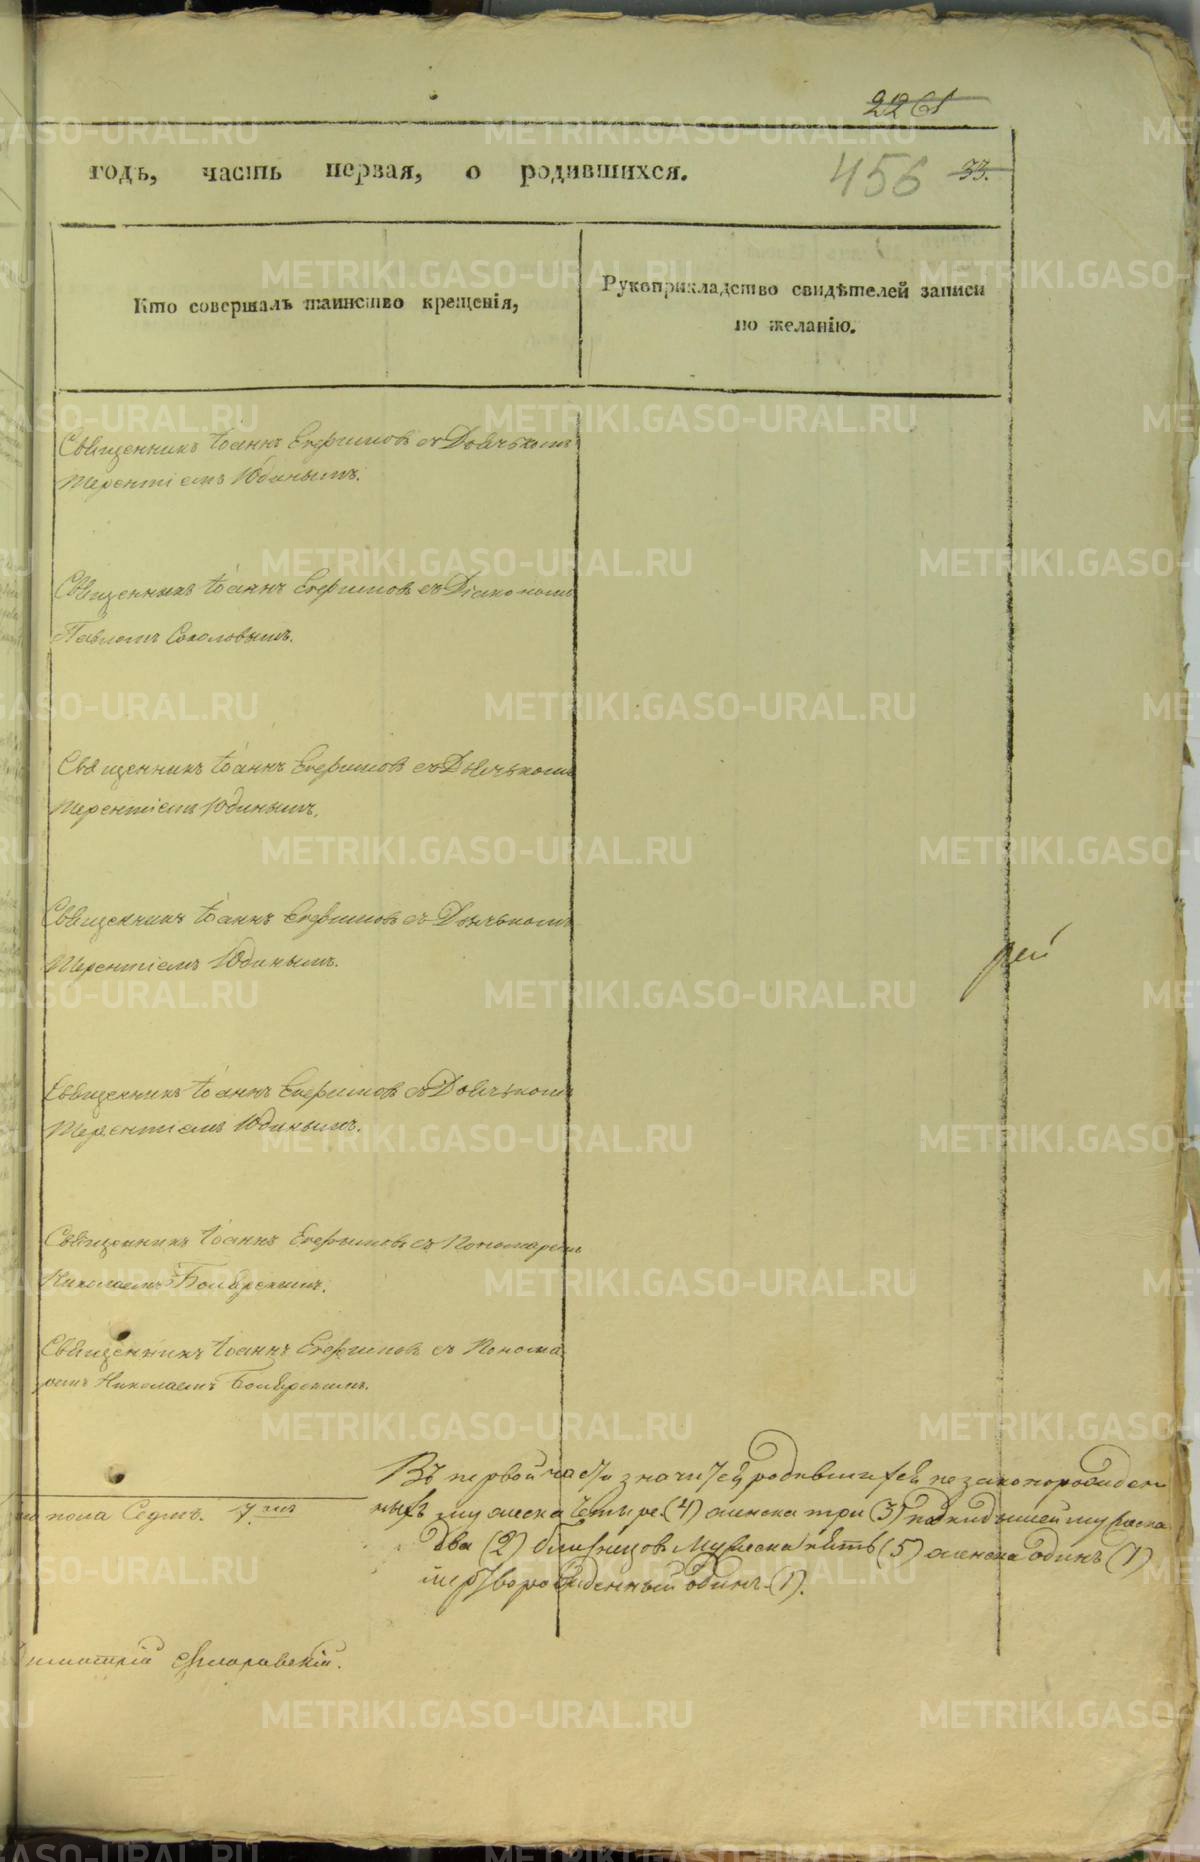 2261
годъ, часть первая, о родившихся. 456 33.
Кто совершалъ таинство крещенія,
Рукоприкладство свидѣтелей записи
по желанію.
Священникъ Іоаннъ Стефановъ съ Дьячькомъ
Терентіемъ Юдинымъ.
Священникъ Іоаннъ Стефановъ съ Діакономъ
Павломъ Соколовымъ.
Священникъ Іоаннъ Стефановъ съ Дьячькомъ
Терентіемъ Юдинымъ.
Священникъ Іоаннъ Стефановъ съ Дьячькомъ
Терентіемъ Юдинымъ.
рей
Священникъ Іоаннъ Стефановъ съ Дьячькомъ
Терентіемъ Юдинымъ.
Священникъ Іоаннъ Стефановъ съ Пономаремъ
Николаемъ Боярскимъ.
Священникъ Іоаннъ Стефановъ съ Понома
ремъ Николаемъ Боярскимъ.
Въ первой части значится родившихся незаконорожден
пола Седмъ. 7.
ныхъ мужеска четыре (4) женска три (3) подкидышей мужеска
два (2) близнецовъ Мужеска пять (5) женска одинъ (1)
мертворожденный одинъ (1).
METRIKI.GASO-URAL.RU